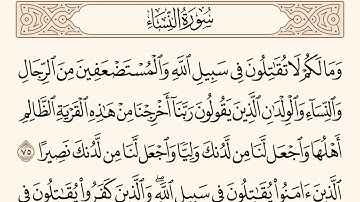 سُورَةُ النِّسَاءِ
وَمَا لَكُمْ لَا تُقَٰتِلُونَ فِى سَبِيلِ ٱللَّهِ وَٱلْمُسْتَضْعَفِينَ مِنَ ٱلرِّجَالِ
وَٱلنِّسَآءِ وَٱلْوِلْدَٰنِ ٱلَّذِينَ يَقُولُونَ رَبَّنَآ أَخْرِجْنَا مِنْ هَٰذِهِ ٱلْقَرْيَةِ ٱلظَّالِمِ
أَهْلُهَا وَٱجْعَل لَّنَا مِن لَّدُنكَ وَلِيًّا وَٱجْعَل لَّنَا مِن لَّدُنكَ نَصِيرًا ٧٥
ٱلَّذِينَ ءَامَنُوا۟ يُقَٰتِلُونَ فِى سَبِيلِ ٱللَّهِ ۖ وَٱلَّذِينَ كَفَرُوا۟ يُقَٰتِلُونَ فِى